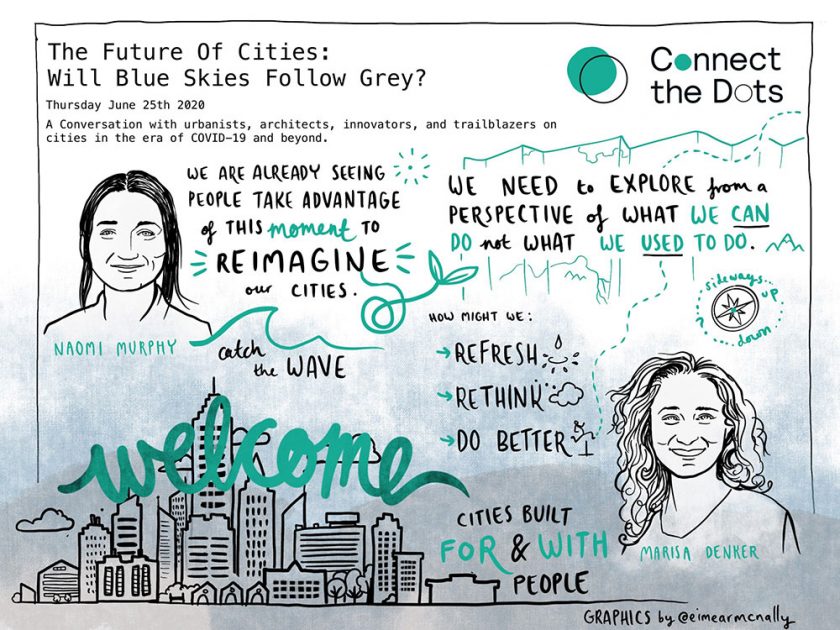 The Future Of Cities:
Will Blue Skies Follow Grey?
Thursday June 25th 2020
A Conversation with urbanists, architects, innovators, and trailblazers on
cities in the era of COVID-19 and beyond.
Connect
the Dots
WE ARE ALREADY SEEING
PEOPLE TAKE ADVANTAGE
of THIS moment TO
REIMAGINE
our CITIES.
NAOMI MURPHY
catch
the WAVE
WE NEED to EXPLORE from a
PERSPECTIVE of WHAT WE CAN
DO not WHAT WE USED TO DO.
sideways
up
down
HOW MIGHT WE:
REFRESH
RETHINK
DO BETTER
welcome
CITIES BUILT
FOR & WITH
PEOPLE
MARISA DENKER
GRAPHICS by @eimearmcnally